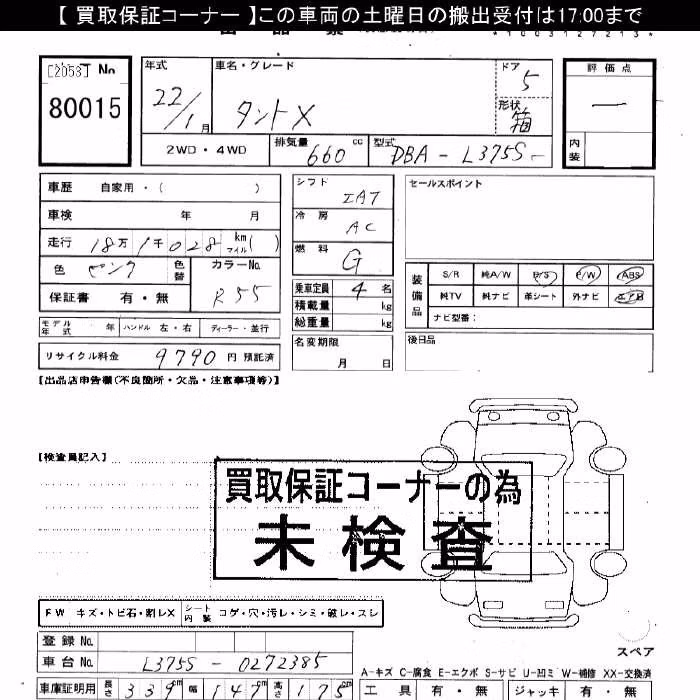 【 買取保証コーナー 】この車両の土曜日の搬出受付は17:00まで
*1003127213*
[2053] No
80015
年式
22/1月
車名・グレード
タントX
ドア
5
形状
箱
評価点
—
内装
2WD・4WD
排気量
660 cc
型式
DBA - L375S -
車歴 自家用・( )
車検 年 月
走行 18万1千028 km マイル( )
色 ピンク 色替
カラーNo.
R55
保証書 有・無
モデル年式 年 ハンドル 左・右 ディーラー・並行
リサイクル料金 9790 円 預託済
シフト
IAT
冷房
AC
燃料
G
乗車定員 4 名
積載量 kg
総重量 kg
名変期限
月 日
セールスポイント
装備品
S/R 純A/W P/S P/W ABS
純TV 純ナビ 革シート 外ナビ エアB
ナビ型番:
後日品
【出品店申告欄(不良箇所・欠品・注意事項等)】
【検査員記入】
買取保証コーナーの為
未検査
FW キズ・トビ石・割レX
シート内装 コゲ・穴・汚レ・シミ・破レ・スレ
登録 No.
車台 No. L375S - 0272385
車庫証明用 長さ 339 cm 幅 147 cm 高さ 175 cm
スペア
A-キズ C-腐食 E-エクボ S-サビ U-凹ミ W-補修 XX-交換済
工具 有・無 ジャッキ 有・無